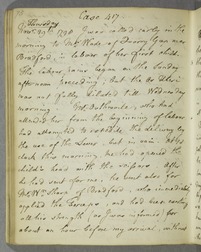 Case 417.
Thursday
Novr. 29th 1838 I was called early in the
morning to Mrs Wade of Gan near
Bradford, in labour of her first child.
The labour pains began on the Sunday
afternoon preceding, but the Os Uteri
was not fully dilated till Wednesday
morning. who had
attended her from the beginning of labour,
had attempted to the delivery by
the use of the Lever, but in vain. At
clock this morning, he had opened the
child's head with the scissors. After
he had sent for me, he sent also for
Mr Wm Sharp of Bradford, who immediately
applied the forceps, and had been exerting
all his strength (as I was informed) for
about an hour before my arrival, without